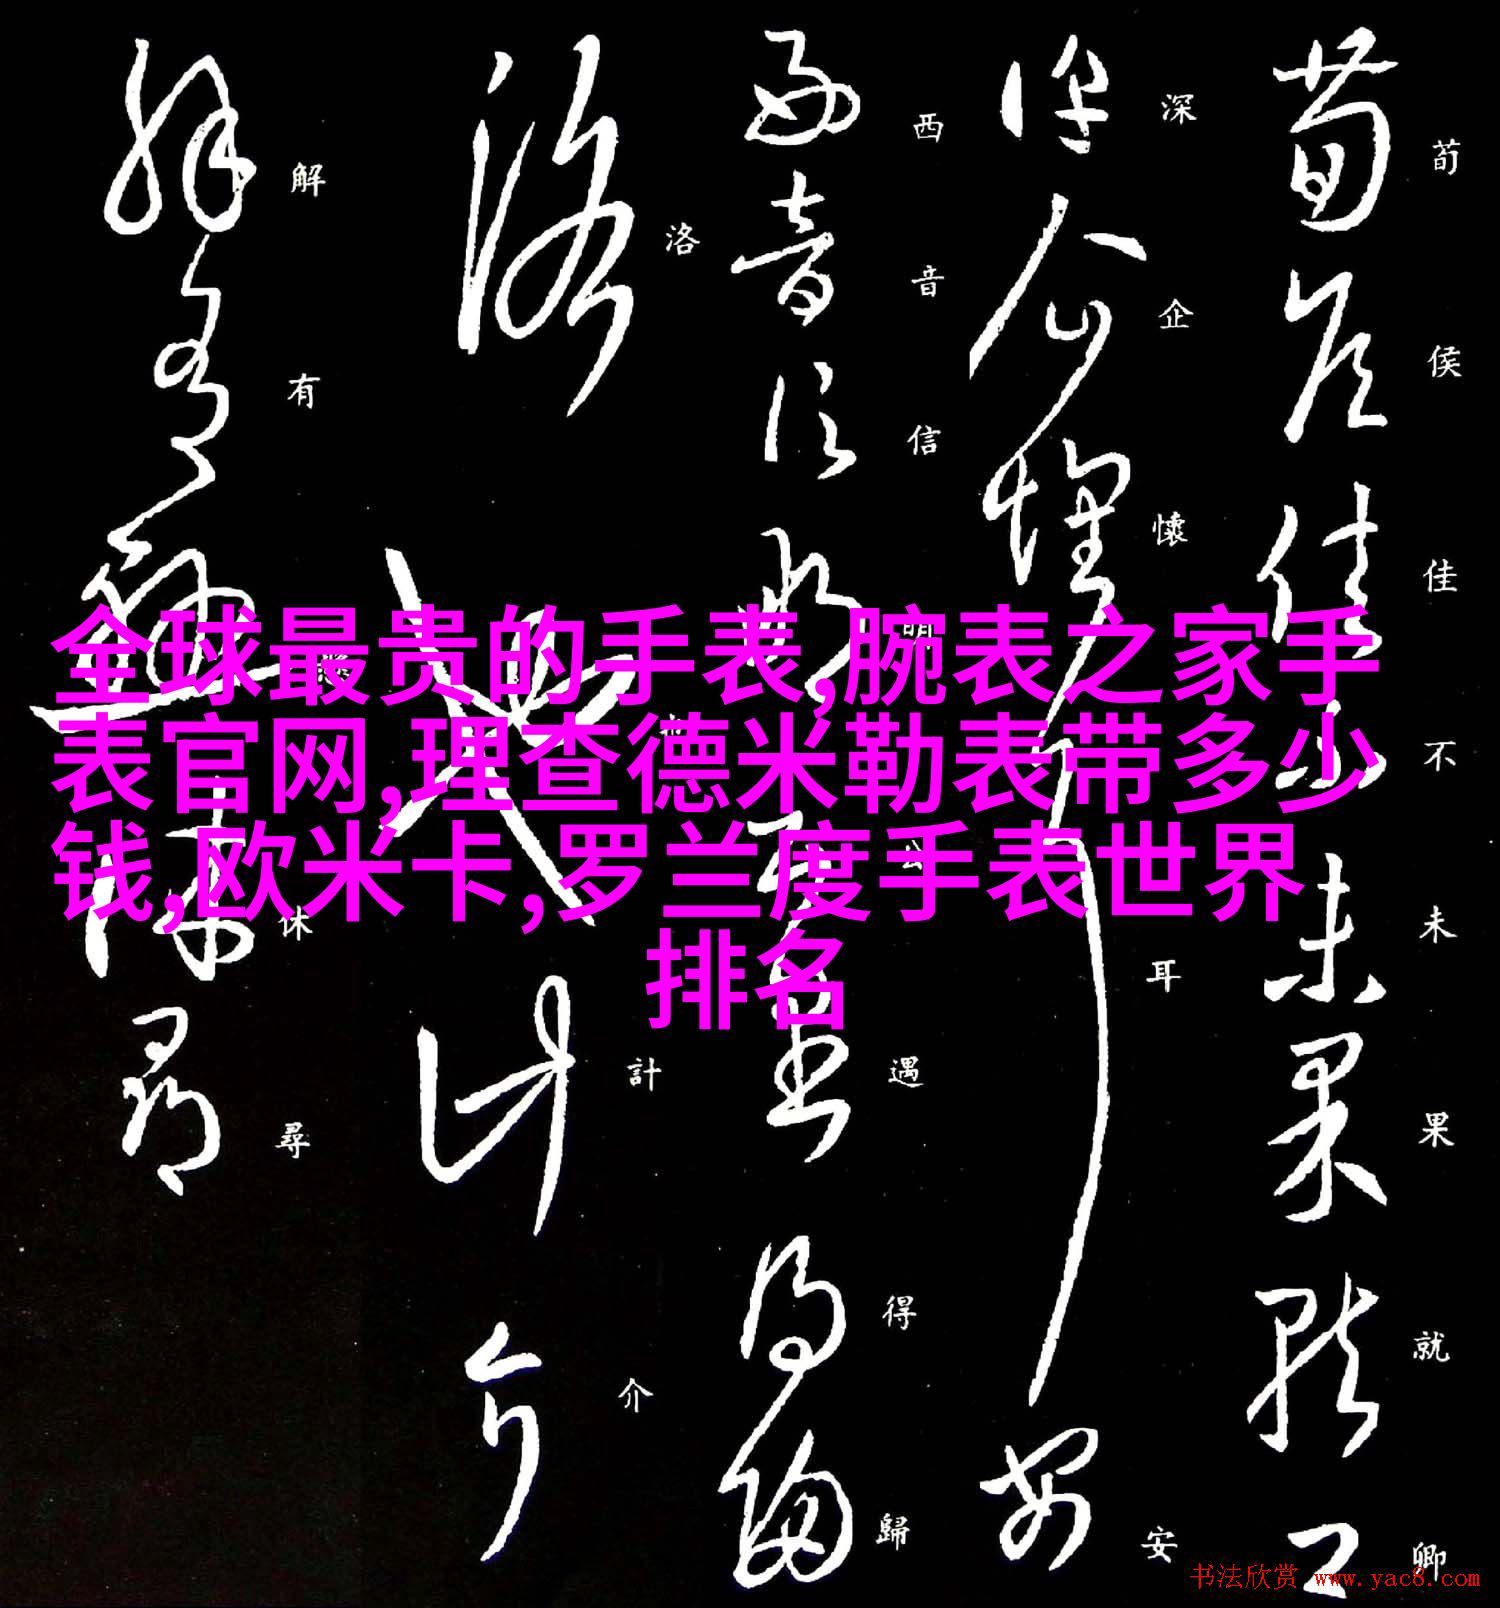 全球最贵的手表,腕表之家手
表官网,理查德米勒表带多少
钱,欧米卡,罗兰度手表世界
排名
荀侯佳不未果就卿
深企懷耳安
西音信明公遇得歸
洛計介
解有休尋
书法欣赏 www.yac8.com